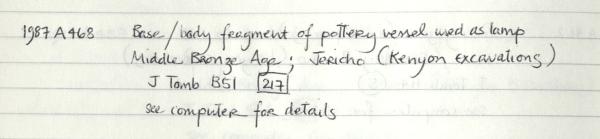 1987 A 468 Base/body fragment of pottery vessel used as lamp
Middle Bronze Age; Jericho (Kenyon excavations)
J Tomb B51 217
see computer for details